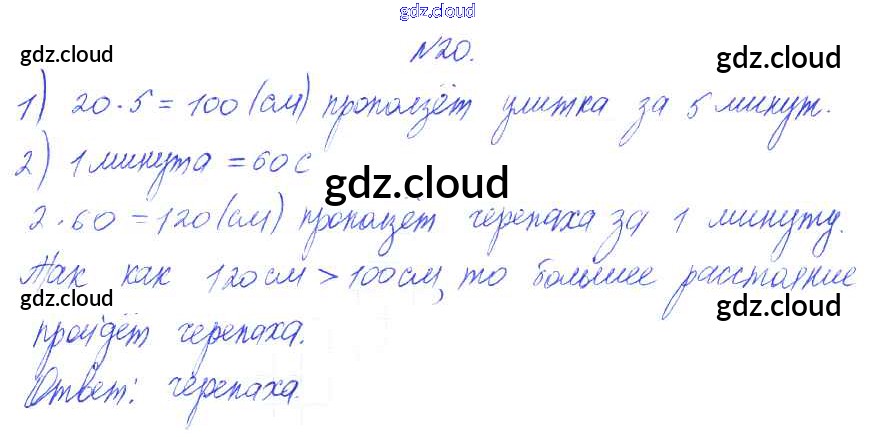 gdz.cloud
№20.
gdz.cloud gdz.cloud
1) 20·5=100(см) проползёт улитка за 5 минут.
gdz.cloud gdz.cloud
2) 1 минута =60с
gdz.cloud
2·60=120(см) проползёт черепаха за 1 минуту.
Так как 120см>100см, то большее расстояние
gdz.cloud gdz.cloud
пройдёт черепаха.
Ответ: черепаха.